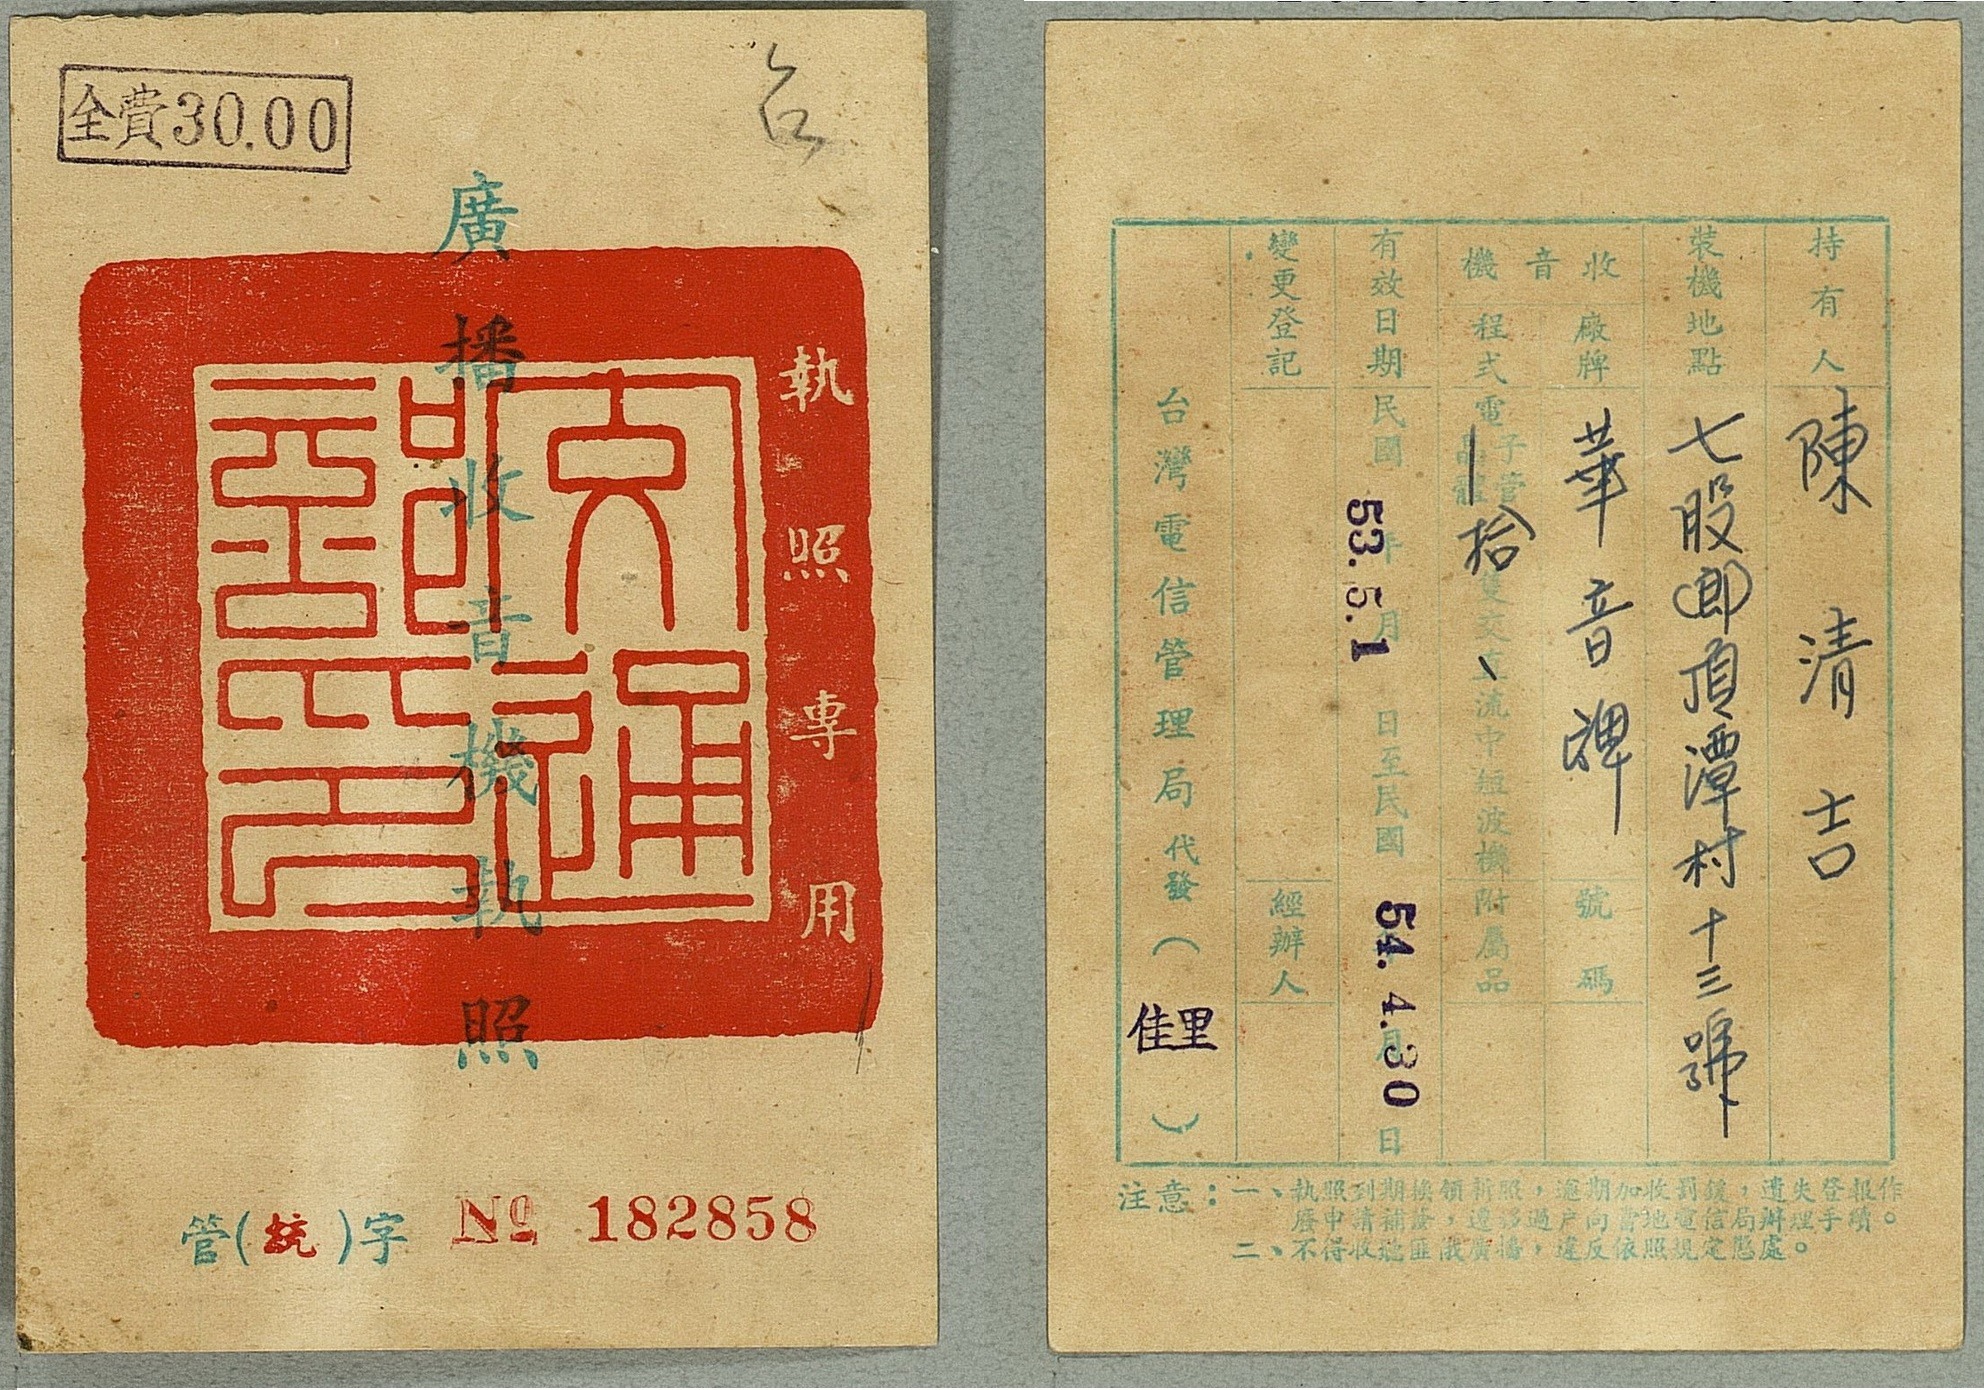 全費30.00
台
廣播收音機執照
執照專用
交通部印
管(統)字 № 182858
持有人 陳清吉
裝機地點 七股鄉頂潭村十三號
收音機
廠牌 華音牌
號碼
程式 電子管 晶體 一拾 隻交直流中短波機
附屬品
有效日期 民國 年 月 日至民國 年 月 日
53.5.1
54.4.30
變更登記
經辦人
台灣電信管理局代發(佳里)
注意：一、執照到期換領新照，逾期加收罰鍰，遺失登報作
廢申請補發，遷移過戶向當地電信局辦理手續。
二、不得收聽匪俄廣播，違反依照規定懲處。